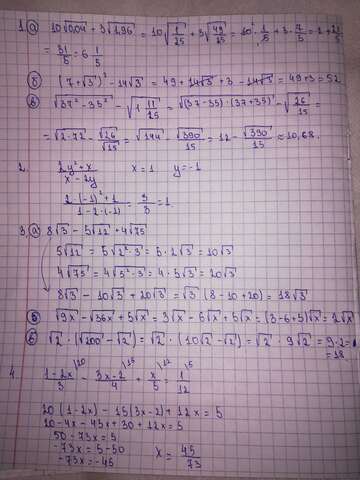 1. а) 10√0,04 + 3√1,96 = 10√(1/25) + 3√(49/25) = 10 · 1/5 + 3 · 7/5 = 2 + 21/5
= 31/5 = 6 1/5
б) (7 + √3)² - 14√3 = 49 + 14√3 + 3 - 14√3 = 49 + 3 = 52
в) √(37² - 35²) - √(1 11/15) = √((37 - 35) · (37 + 35)) - √(26/15) =
= √(2 · 72) - √26/√15 = √144 - √390/15 = 12 - √390/15 ≈ 10,68.
2. (2y² + x)/(x - 2y) x = 1 y = -1
(2 · (-1)² + 1)/(1 - 2 · (-1)) = 3/3 = 1.
3. а) 8√3 - 5√12 + 4√75
5√12 = 5√(2² · 3) = 5 · 2√3 = 10√3
4√75 = 4√(5² · 3) = 4 · 5√3 = 20√3
8√3 - 10√3 + 20√3 = √3 (8 - 10 + 20) = 18√3
б) √9x - √36x + 5√x = 3√x - 6√x + 5√x = (3 - 6 + 5)√x = 2√x
√2 · (√200 - √2) = √2 · (10√2 - √2) = √2 · 9√2 = 9 · 2 =
= 18.
4. (1 - 2x)/3 \20 - (3x - 2)/4 \15 + x/5 \12 = 1/12 \5
20(1 - 2x) - 15(3x - 2) + 12x = 5
20 - 4x - 45x + 30 + 12x = 5
50 - 73x = 5
-73x = 5 - 50
-73x = -45 x = 45/73